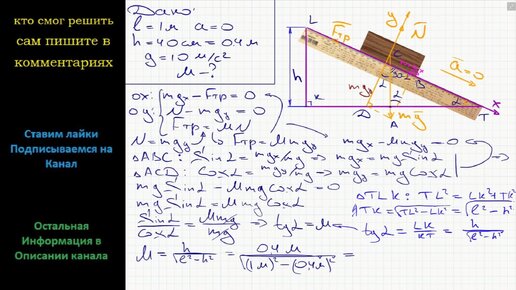 кто смог решить
сам пишите в
комментариях
Ставим лайки
Подписываемся на
Канал
Остальная
Информация в
Описании канала
Дано:
l = 1м a = 0
h = 40см = 0,4м
g = 10 м/с²
μ - ?
L
h
K
Fтр
y
N
C
a = 0
mgy
B
α
D
A
mg
T
x
ox: mgx - Fтр = 0
oy: N - mgy = 0
Fтр = μN
N = mgy => Fтр = μmgy
mgx - μmgy = 0
ΔABC: sinα = mgx/mg => mgx = mg sinα
ΔACD: cosα = mgy/mg => mgy = mg cosα
mg sinα - μmg cosα = 0
mg sinα = μmg cosα
sinα/cosα = μmg/mg => tgα = μ
ΔTLK: TL² = LK² + TK²
TK = √(TL² - LK²) = √(l² - h²)
tgα = LK/KT = h/√(l² - h²)
μ = h/√(l² - h²) = 0,4м/√((1м)² - (0,4м)²) =